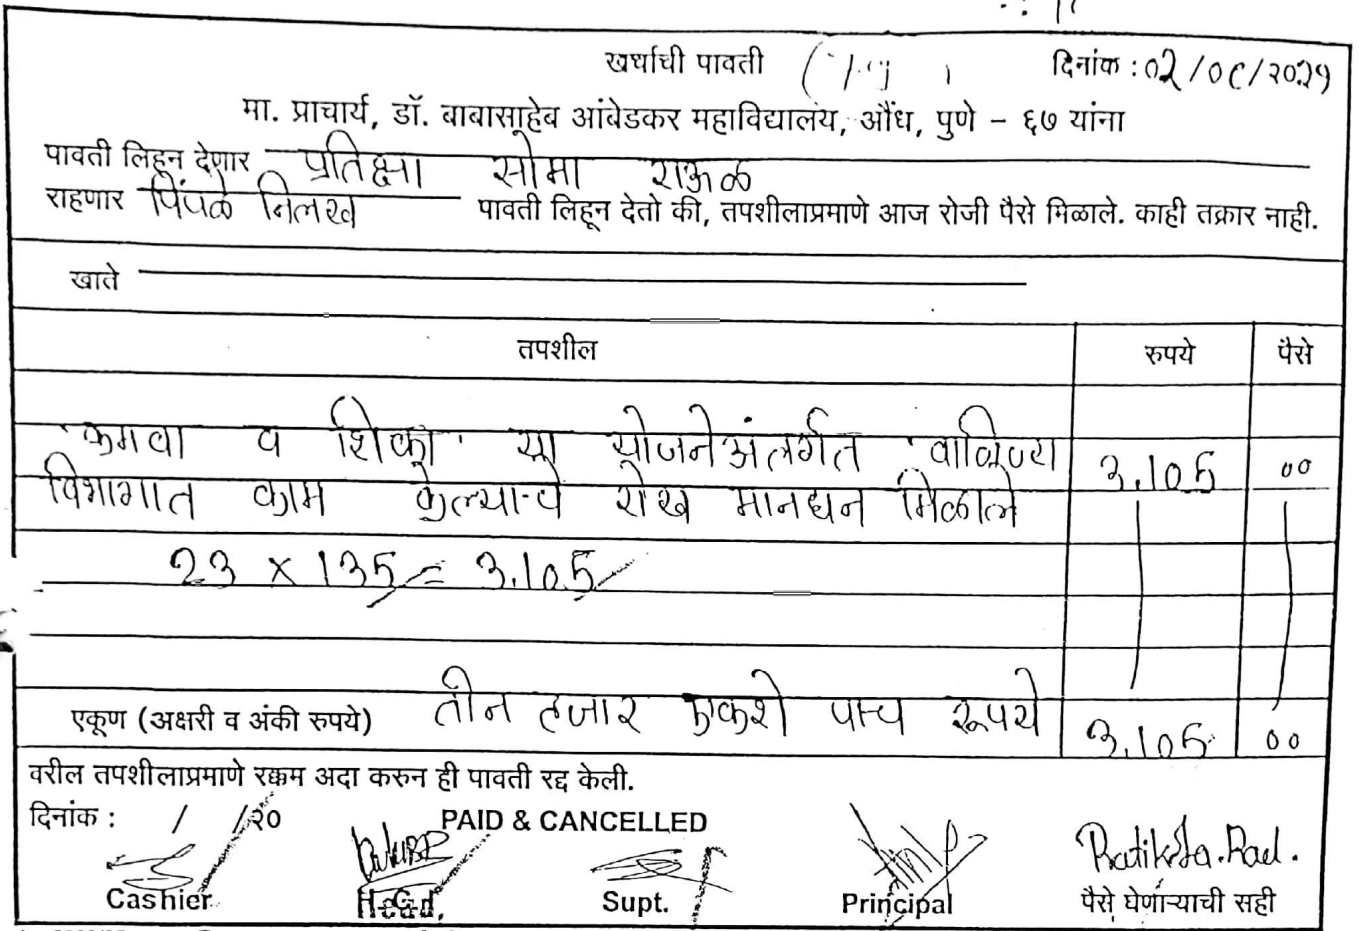 खर्चाची पावती
दिनांक : ०२/०८/२०२१
मा. प्राचार्य, डॉ. बाबासाहेब आंबेडकर महाविद्यालय, औंध, पुणे – ६७ यांना
पावती लिहून देणार प्रतिक्षा सोमा राऊळ
राहणार पिंपळे निलख पावती लिहून देतो की, तपशीलाप्रमाणे आज रोजी पैसे मिळाले. काही तक्रार नाही.
खाते
तपशील रुपये पैसे
'कमवा व शिका' या योजनेअंतर्गत वाणिज्य 3,105 ००
विभागात काम केल्याचे रोख मानधन मिळाले
23 × 135/= 3,105/
एकूण (अक्षरी व अंकी रुपये) तीन हजार एकशे पाच रूपये 3,105 ००
वरील तपशीलाप्रमाणे रक्कम अदा करुन ही पावती रद्द केली.
दिनांक : / /२० PAID & CANCELLED
Cashier Supt. Principal पैसे घेणाऱ्याची सही